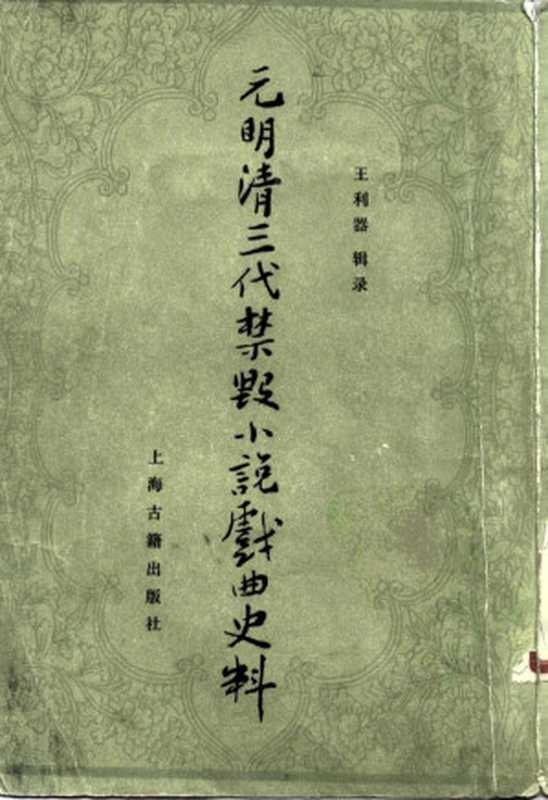 王利器 辑录
元明清三代禁毁小說戲曲史料
上海古籍出版社